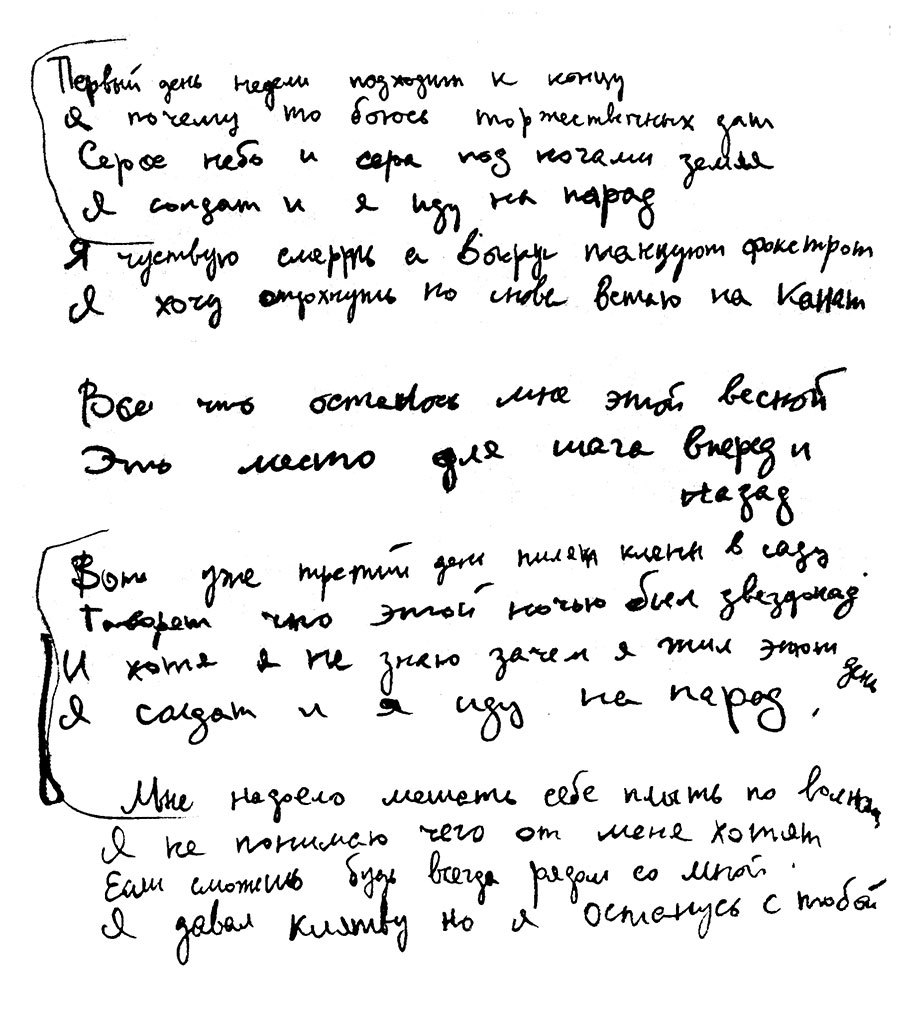 Первый день недели подходит к концу
Я почему то боюсь торжественных дат
Серое небо и сера под ногами земля
Я солдат и я иду на парад
Я чуствую смерть а вокруг танцуют фокстрот
Я хочу отдохнуть но снова встаю на канат
Все что осталось мне этой весной
Это место для шага вперед и
назад
Вот уже третий день пилят клены в саду
Говорят что этой ночью был звездопад
И хотя я не знаю зачем я жил этот
день
Я солдат и я иду на парад.
Мне надоело мешать себе плыть по волнам
Я не понимаю чего от меня хотят
Если сможешь будь всегда рядом со мной.
Я давал клятву но я останусь с тобой